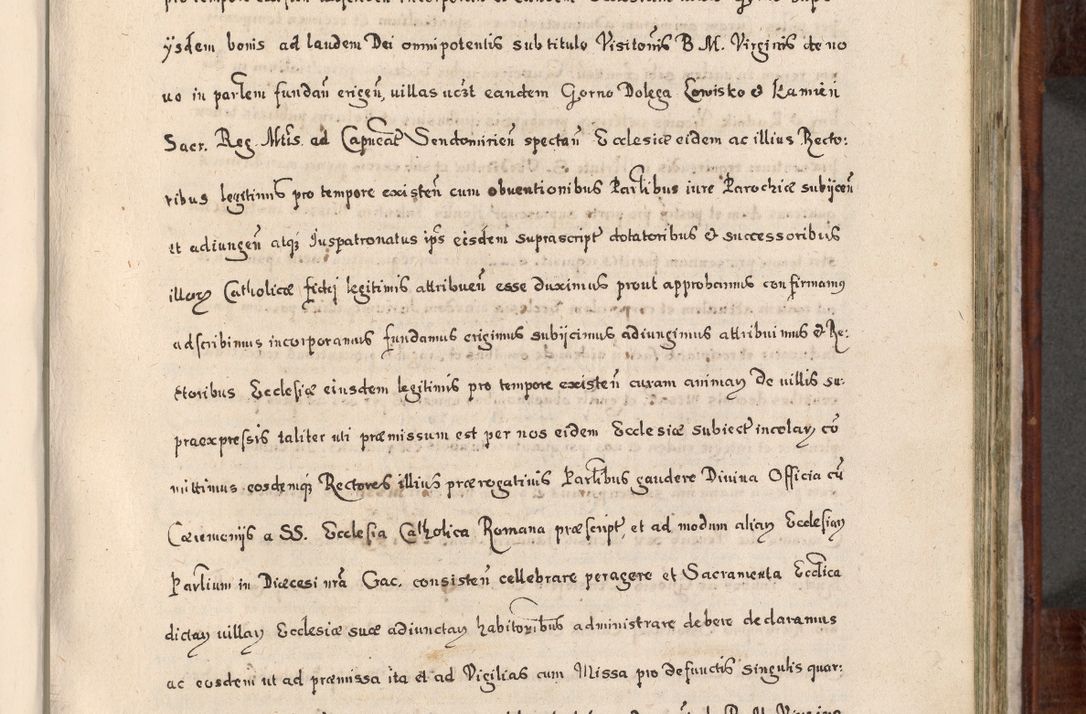 ysdem bonis ad laudem Dei omnipotentis sub titulo Visitonis B. M. Virginis de no
uo in parlem fundan̄ erigen̄, villas uczt eandem Gorno Dolega Lowisko et Kamień
Sacr. Reg. Mtis. ad Capucat Sendomirien̄ spectan̄ Ecclesiæ eidem ac illius Recto:
ribus legitimis pro tempore existen̄ cum obuentionibus Parlibus iure Parochiæ subijcen̄
et adiungen̄ atq3 Iuspatronatus ips eisdem suprascript dotatoribus et successoribus
illorz Catholicæ fidej legitimis attribuen̄ esse duximus prout approbamus confirmamus
adscribimus incorporamus fundamus erigimus subijcimus adiungimus attribuimus et Re:
ctoribus Ecclesiæ eiusdem legitimis pro tempore existen̄ curam animarz De villis su:
praexpressis taliter uti præmissum est per nos eidem Ecclesiæ subiect incolarz cō
mittimus eosdemq3 Rectores illius prærogatiuis Parlibus gaudere Diuina Officia cū
Cæremonijs a SS. Ecclesia Catholica Romana præscript, et ad modum aliarz Ecclesiarz
Parlium in Diæcesi nrā Cac. consisten̄ cellebrare peragere et Sacramenta Ecclica
dictarz villarz Ecclesiæ suæ adiunctarz habitoribus administrare debere declaramus
ac eosdem ut ad præmissa ita et ad Vigilias cum Missa pro defunctis singulis quar: